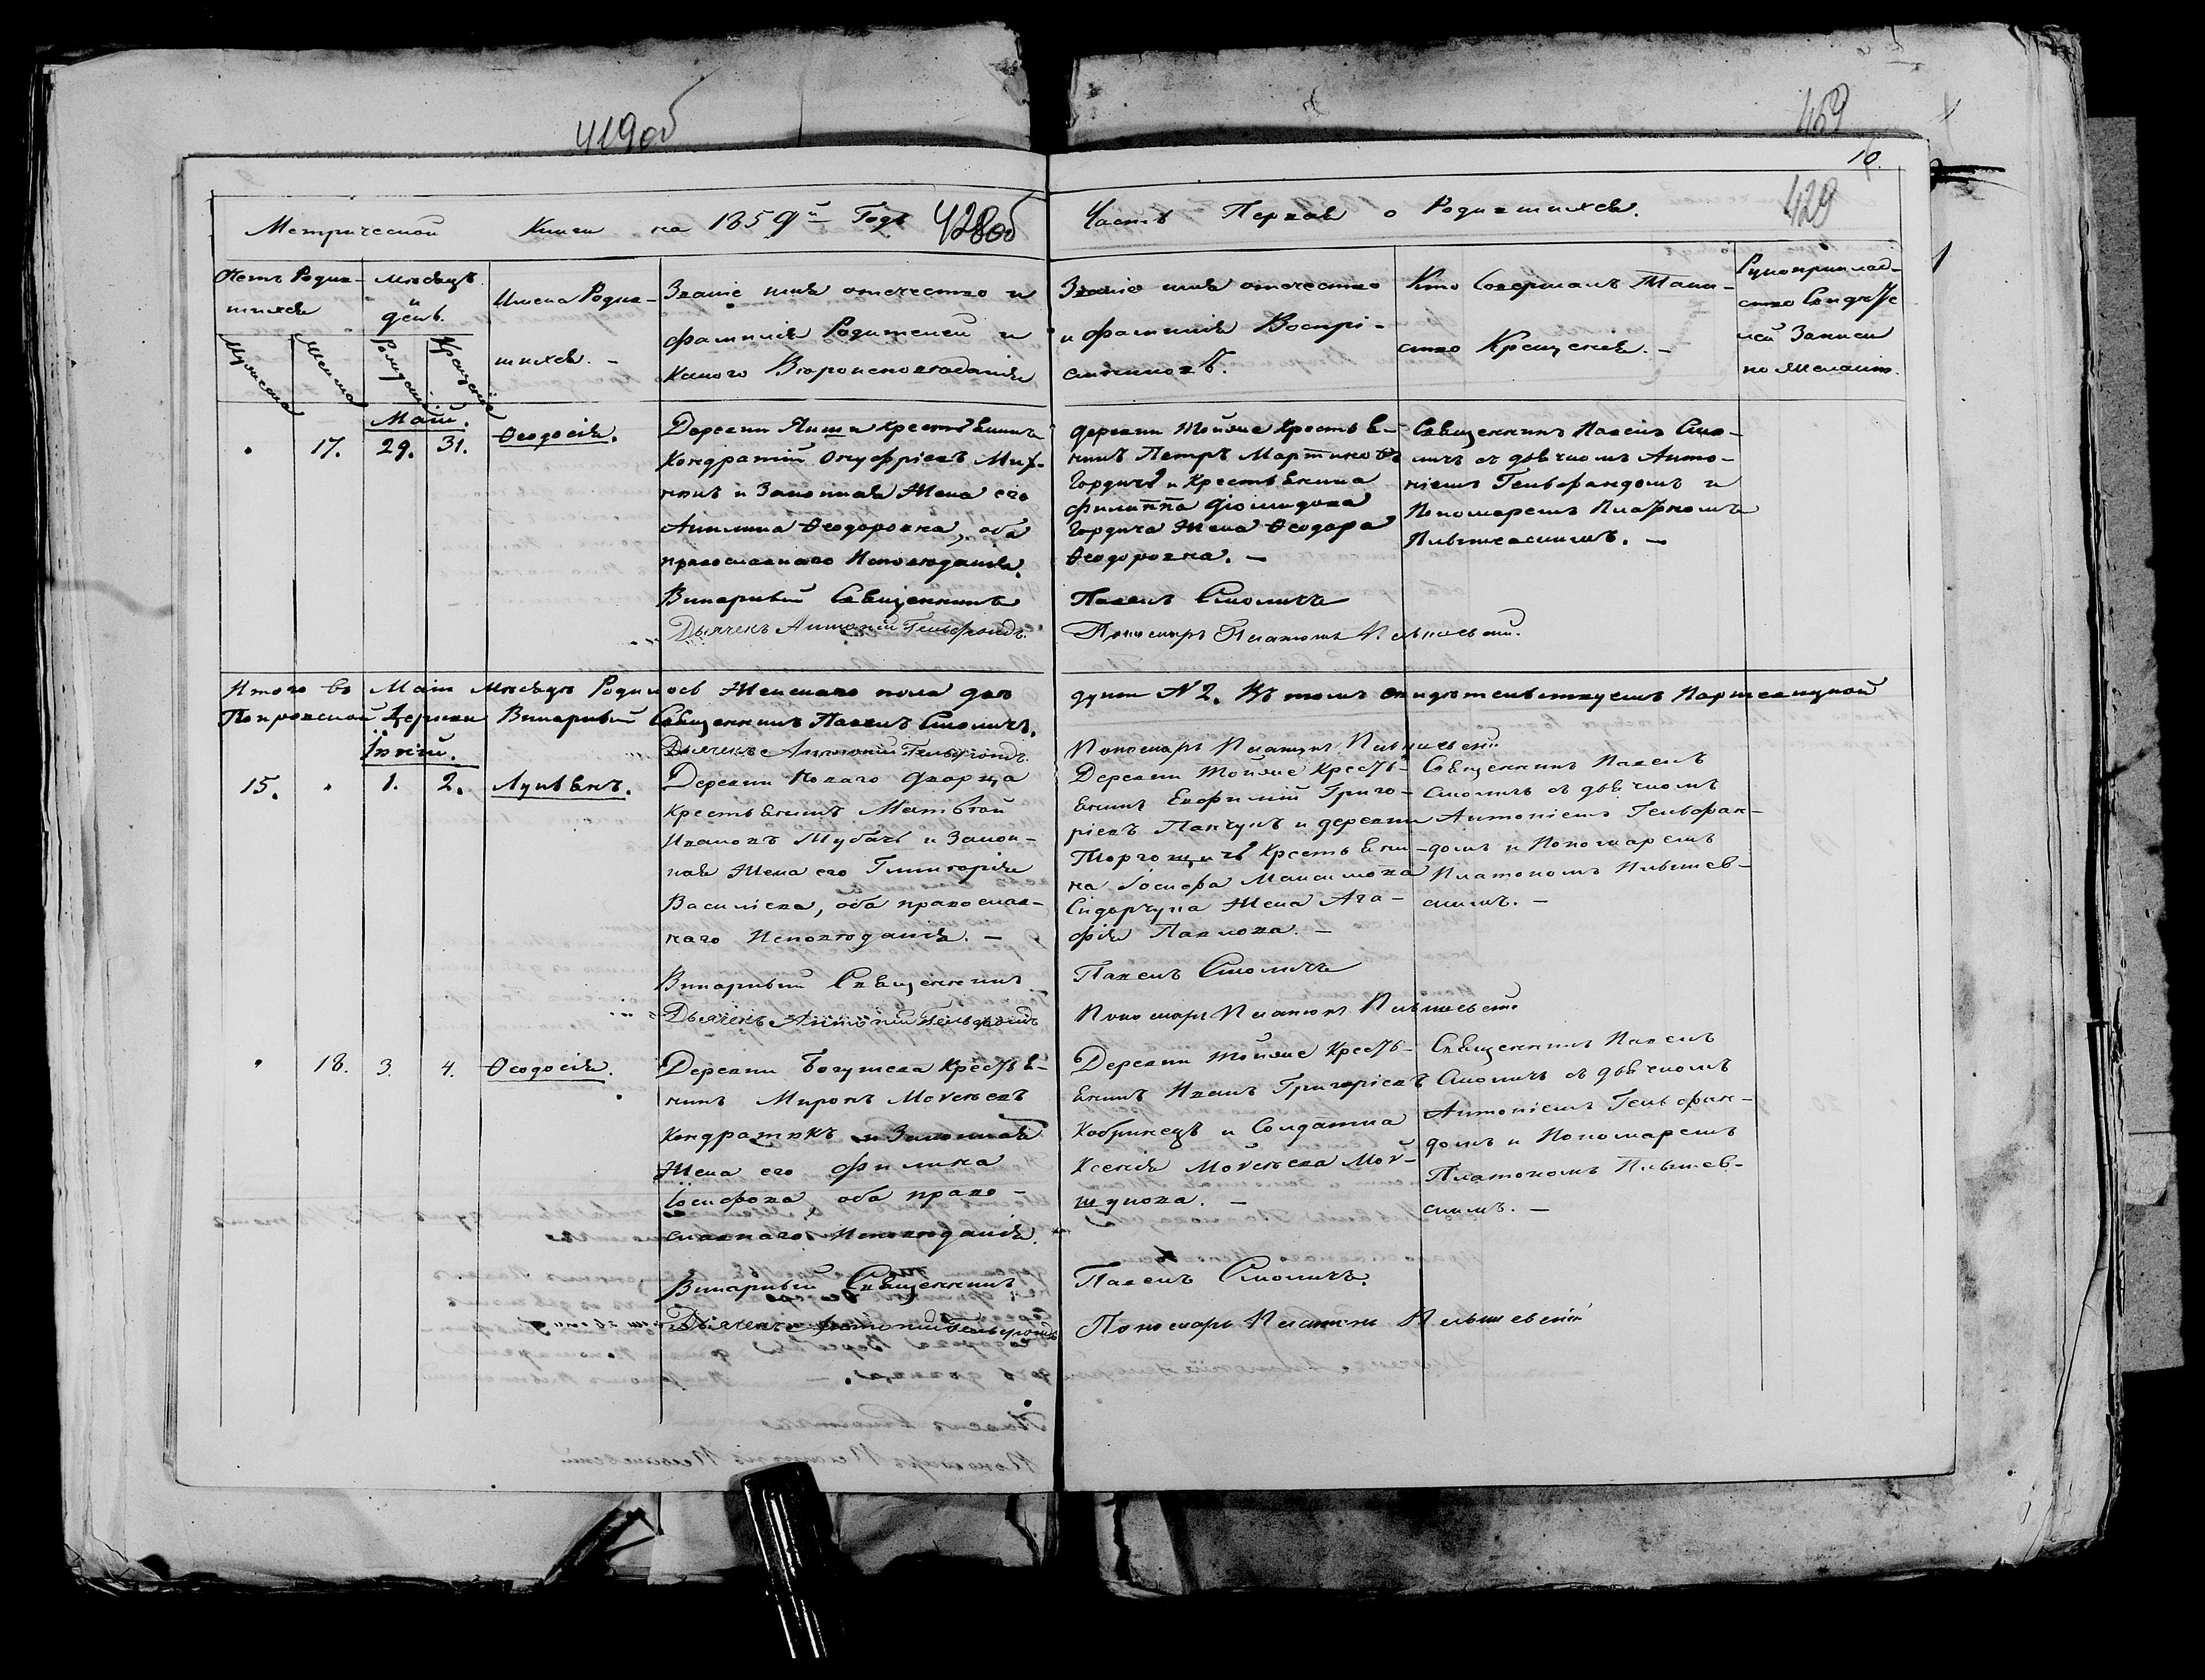 419об
469
10.
Метрической Книги на 1859й Годъ 428об
Часть Первая о Родившихся. 429
Счетъ Родив-
шихся
Мужска
Женска
Мѣсяцъ
и
день.
Рожденія
Крещенія
Имена Родив-
шихся. –
Званіе имя отечество и
фамилія Родителей и
Какого Вѣроисповѣданія
Званіе имя отечество
и фамилія Воспрі-
емниковъ.
Кто Совершалъ Таин-
ство Крещенія. –
Рукоприклад-
ство Свидѣте
лей Записи
по желанію.
Май.
17. 29. 31. Ѳеодосія.
Деревни Яиши крестьянинъ
Кондратій Онуфріевъ Мих-
нюкъ и Законная Жена его
Акилина Ѳеодоровна, оба
православнаго Исповѣданія.
Викарный Священникъ
Дьячекъ Антоній Гельфондъ.
деревни Мойсые Кресть я-
нинъ Петръ Мартиновъ
Гордичъ и Крестьянина
Филиппа Діомидова
Гордича Жена Ѳеодора
Ѳеодоровна. –
Павелъ Смоличъ
Пономарь Платонъ
Священникъ Павелъ Смо-
личъ съ дьячкомъ Анто-
ніемъ Гельфандомъ и
Пономаремъ Платономъ
Итого въ Маѣ Мѣсяцѣ Родилось Женскаго пола двѣ
души N 2. Въ томъ свидѣтельствуемъ
Покровской Церкви Викарный Священникъ Павелъ Смоличъ.
Дьячекъ Антоній Гельфондъ.
Пономарь Платонъ
Іюнь.
15. 1. 2. Лукьянъ.
Деревни Новаго Дворца
Крестьянинъ Матвѣй
Ивановъ Мубачъ и Закон-
ная Жена его Гликерія
Василіева, оба православ-
наго Исповѣданія. –
Викарный Священникъ
Дьячекъ Антоній Гельфондъ
Деревни Мойсые Кресть-
янинъ Евфимій Григо-
ріевъ Панчукъ и деревни
Крестьяни-
на Іосифа Максимова
Сидорчука Жена Ага-
фія Павлова. –
Павелъ Смоличъ
Пономарь Платонъ
Священникъ Павелъ
Смоличъ съ дьячкомъ
Антоніемъ Гельфан-
домъ и Пономаремъ
Платономъ
18. 3. 4. Ѳеодосія.
Деревни Богушева Крестья-
нинъ Миронъ Моѵсеевъ
Кондратюкъ и Законная
Жена его Филика
Іосифова, оба право-
славнаго Исповѣданія.
Викарный Священникъ
Дьячекъ Антоній Гельфондъ
Деревни Мойсые Кресть-
янинъ Иванъ Григоріевъ
Кобринецъ и Солдатка
Ксенія Моѵсеева Мой-
шукова. –
Павелъ Смоличъ.
Пономарь Платонъ
Священникъ Павелъ
Смоличъ съ дьячкомъ
Антоніемъ Гельфан-
домъ и Пономаремъ
Платономъ